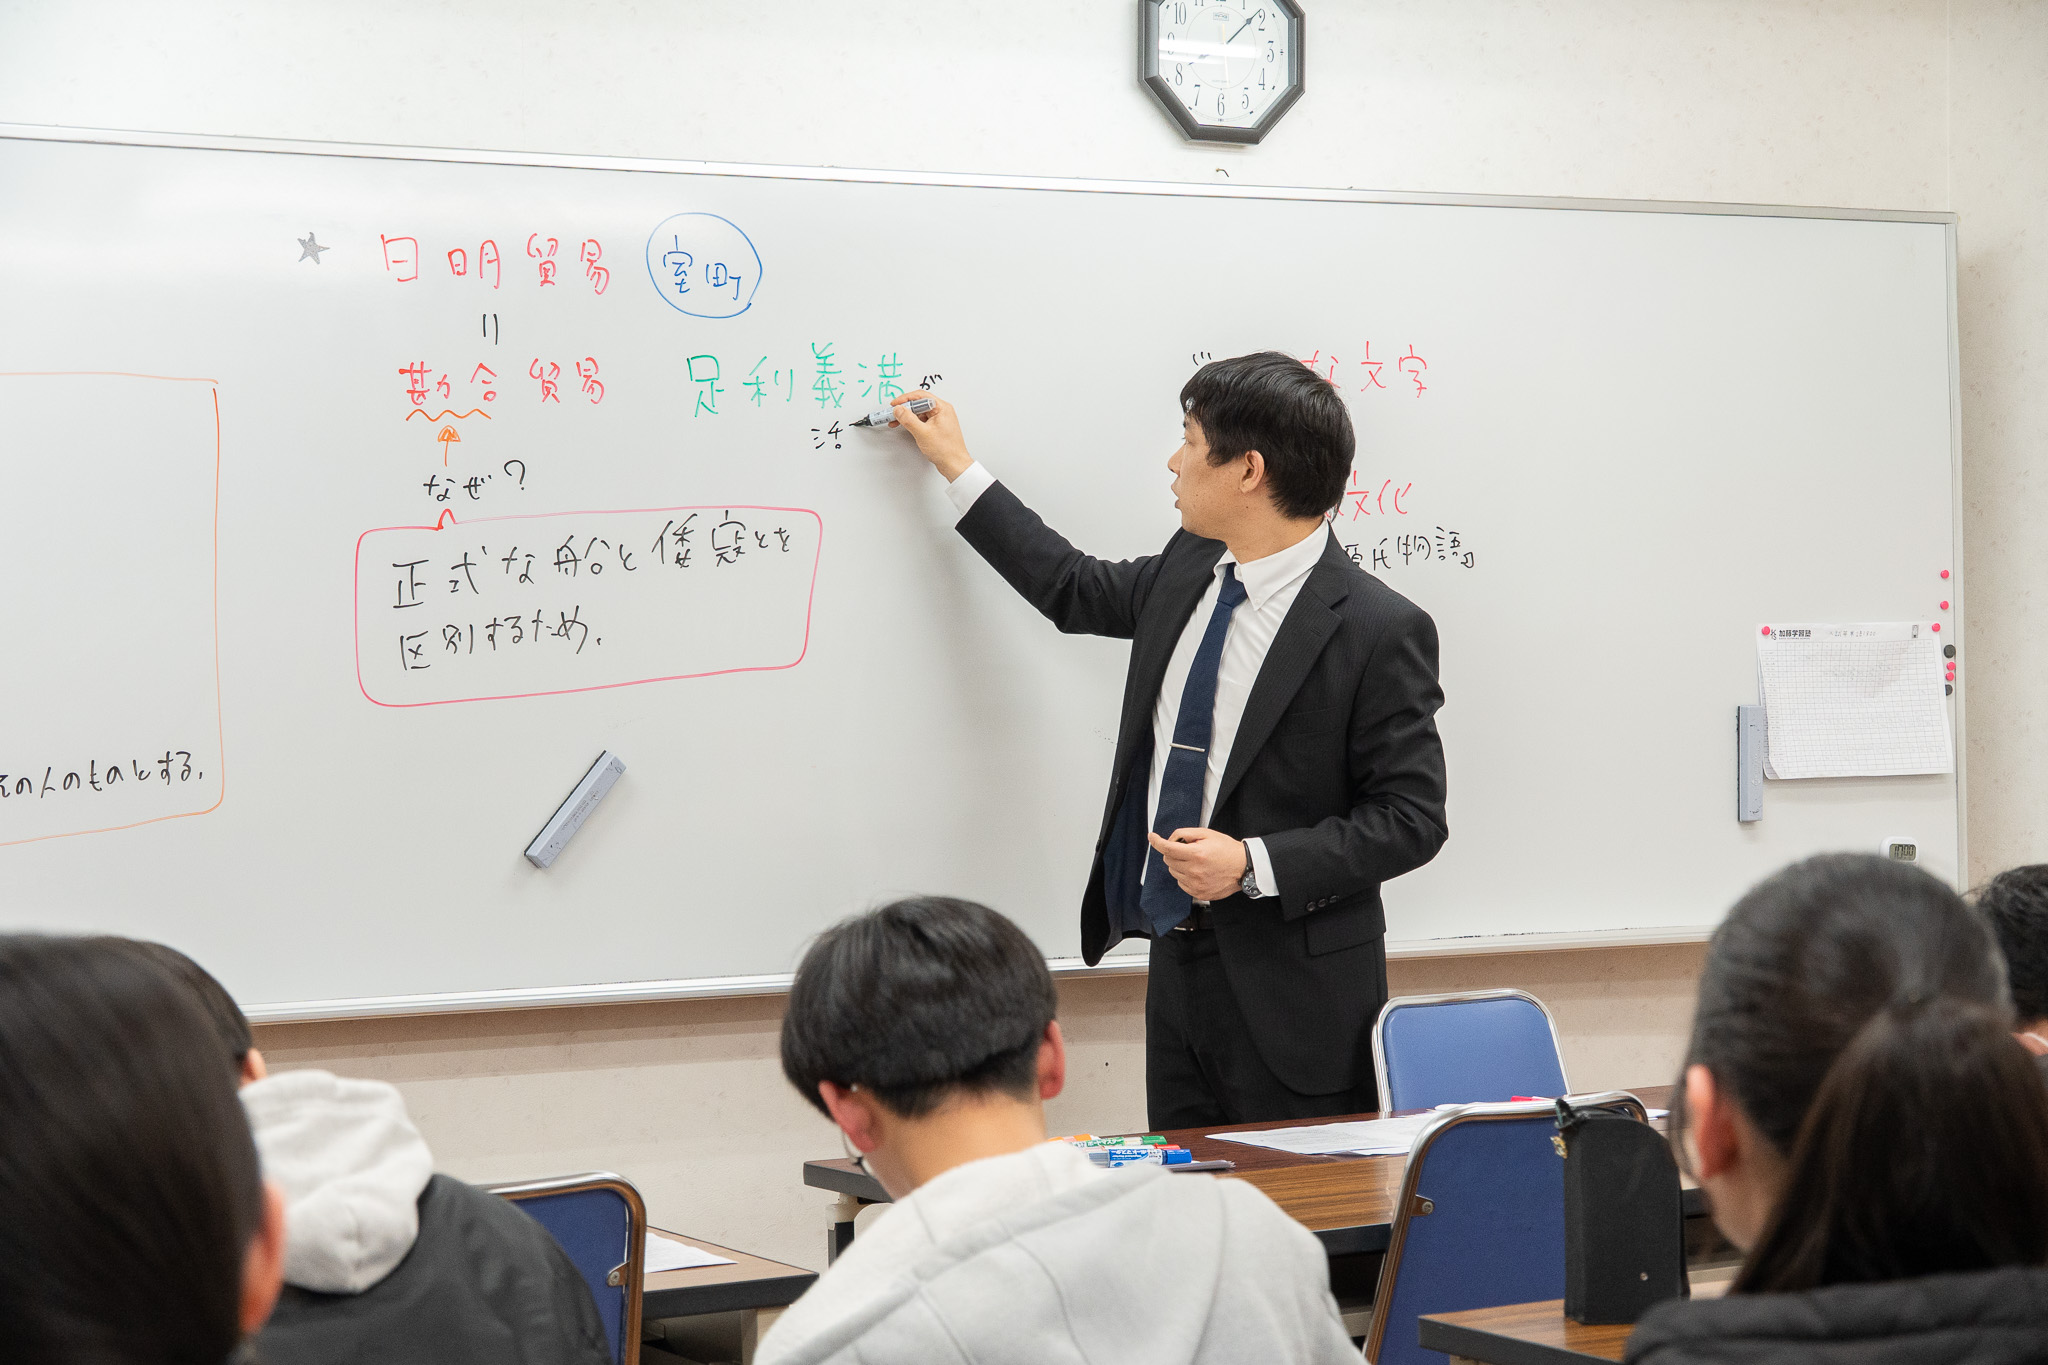 日明貿易 室町
=
勘合貿易 足利義満が
活
なぜ?
正式な船と倭寇とを
区別するため.
の人のものとする.
な文字
文化
氏物語』
加藤学習塾
10 1 2 3 4 5 6 7 8